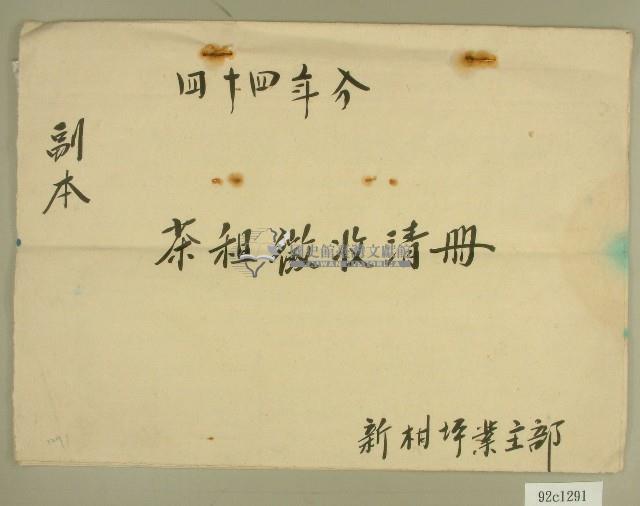 四十四年分
副本
茶租徵收清冊
國史館臺灣文獻館
TAIWAN HISTORICA
新柑坪業主部
92c1291